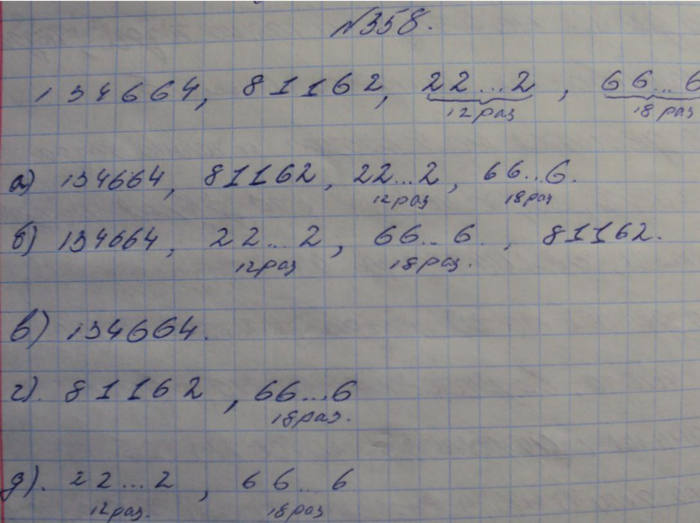 №358.
134664, 81162, 22...2, 66...6
12 раз 18 раз
а) 134664, 81162, 22...2, 66...6.
12 раз 18 раз
б) 134664, 22...2, 66...6, 81162.
12 раз 18 раз.
в) 134664.
г). 81162, 66...6
18 раз.
д). 22...2, 66...6
12 раз. 18 раз